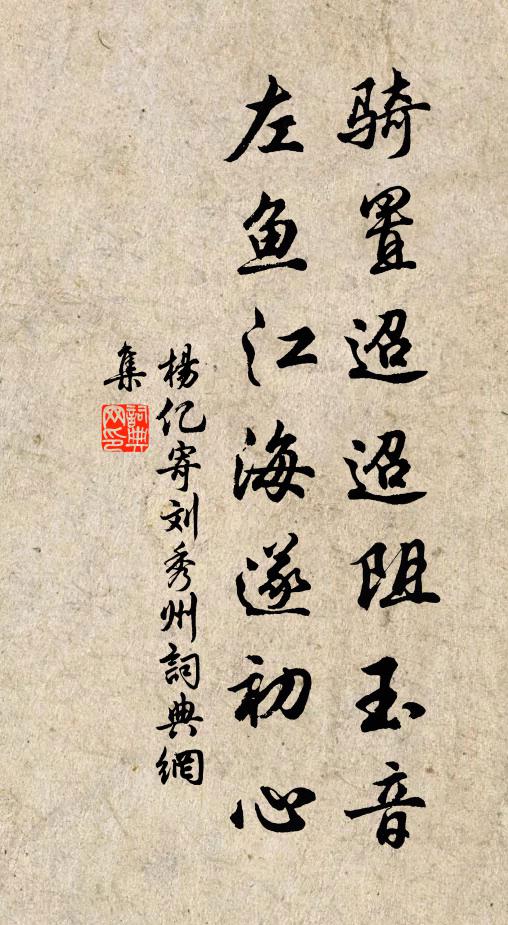 骑置迢迢阻玉音
左鱼江海遂初心
杨亿寄刘秀州詞典網
集
詞典
网印